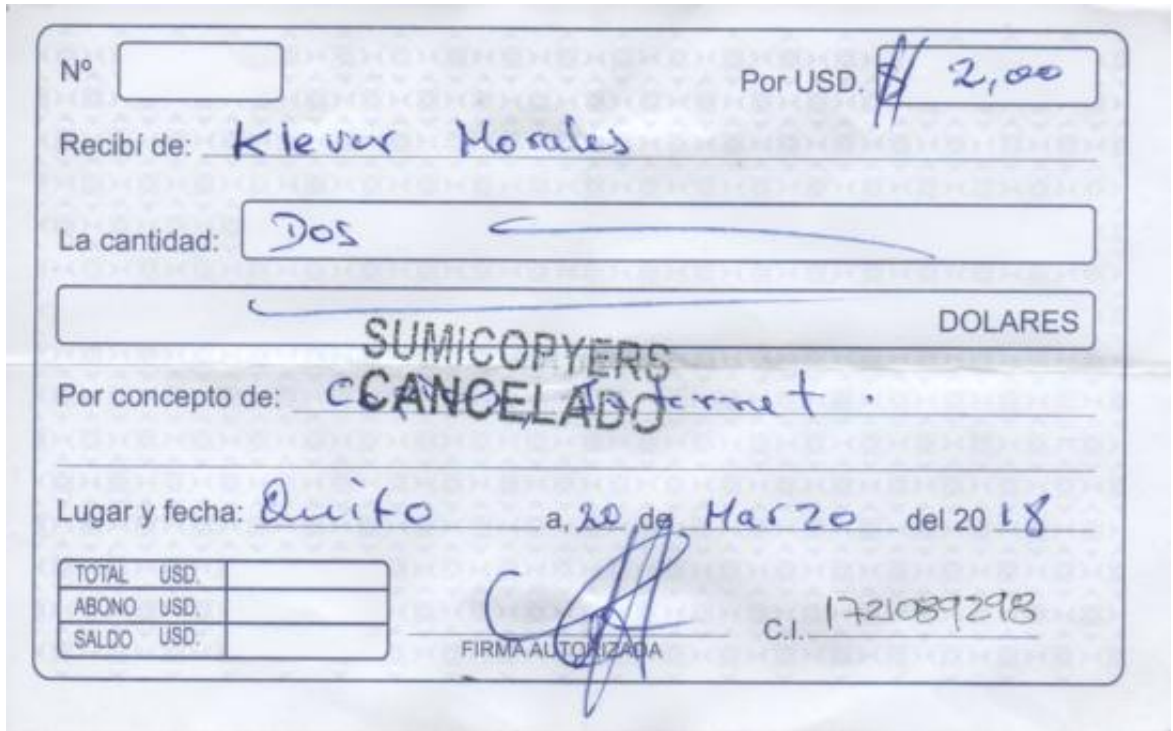 Nº Por USD. $ 2,00
Recibí de: Klever Morales
La cantidad: Dos
DOLARES
SUMICOPYERS
CANCELADO
Por concepto de: Internet.
Lugar y fecha: Quito a, 20 de Marzo del 20 18
TOTAL USD.
ABONO USD.
SALDO USD.
FIRMA AUTORIZADA C.I. 1721089298